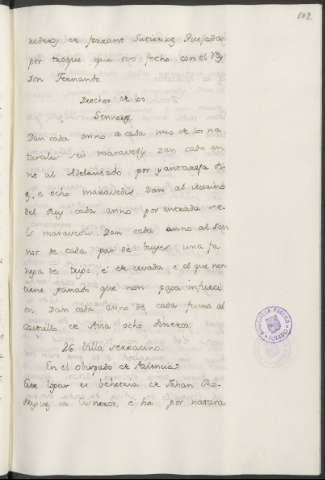 por troque que fizo con el Rey
Don Fernando
Derechos de los
Sennores
Dan cada anno a cada uno de los na-
turales seis maravedis Dan cada an-
no al Adelantado por yantareja
e ocho maravedis Dan al Merino
del Rey cada anno por entrada se-
is maravedis Dan cada anno al Sen-
nor de cada par de bueyes una fa-
nega de trigo e de cevada e el que non
tiene ganado que non paga infurci-
on Dan cada anno de cada fumo al
Castillo de Aña ocho dineros
26 Villa
En el obispado de Palencia
Este logar es behetria de Johan Ro-
de Cisneros e ha por natura